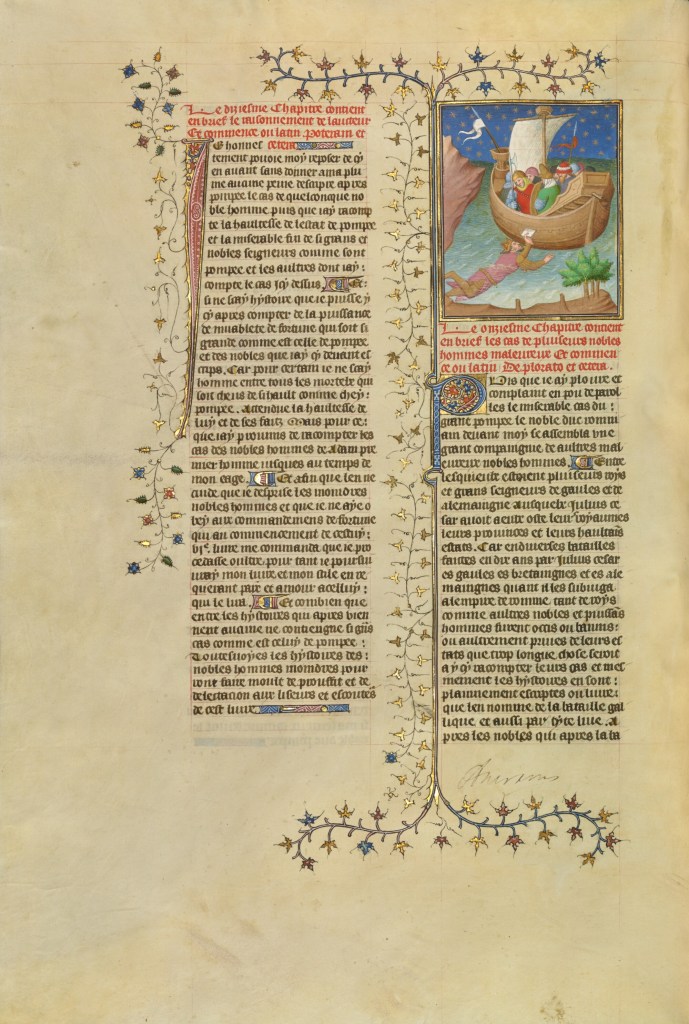 Le dixiesme Chapitre contient
en brief le raisonnement de lauteur
Et commence ou latin Poteram et
cetera
Ehonnes
tement pouoie moy reposer de cy
en auant sans donner a ma plu
me aucune peine descrire apres
pompee le cas de quelconque no
ble homme puis que iay racomp
te la haultesse de lestat de pompee
et la miserable fin de si grans et
nobles seigneurs comme sont
pompee et les aultres dont iay
compte le cas icy dessus Et
si ne scay hystoire que ie puisse y
cy apres compter de la puissance
de muablete de fortune qui soit si
grande comme est celle de pompee
et des nobles que iay cy deuant es
crips. Car pour certain ie ne scay
homme entre tous les mortelz qui
soit cheus de si hault comme chey
pompee. Attendue la haultesse de
luy et de ses faiz Mais pour ce
que iay promis de racompter les
cas des nobles hommes de Adam pre
mier homme iusques au temps de
mon eage. Et afin que len ne
cuide que ie desprise les moindres
nobles hommes et que ie ne aye o
bey aux commandemens de fortune
qui au commencement de cestuy
vi.e liure me commanda que ie pro
cedasse oultre, pour tant ie poursui
uray mon liure et mon stile en re
querant paix et amour a celluy
qui le lira. Et combien que
entre les hystoires qui apres vien
nent aucune ne contiengne si grans
cas comme est celuy de pompee
Toutesuoyes les hystoires des
nobles hommes moindres pour
ront faire moult de prouffit et de
delectation aux liseurs et escouteurs
de cest liure.
Le onziesme Chapitre contient
en brief les cas de pluseurs nobles
hommes maleureux Et commen
ce ou latin De plorato et cetera.
Puis que iay ploure et
complaint en pou de parol
les le miserable cas du
grant pompee le noble duc rommain
deuant moy se assembla vne
grant compaignie de aultres mal
eureux nobles hommes. Entre
lesquielz estoient pluseurs roys
et grans seigneurs de gaules et de
alemaigne ausquelz Julius ce
sar auoit a eulx oste leurs royaumes
leurs prouinces et leurs haultains
estats. Car en diuerses batailles
faictes en dix ans par Julius cesar
es gaules es bretaingnes et es ale
maingnes quant il les subiuga
a lempire de romme, tant de roys
comme aultres nobles et puissans
hommes furent occis ou bannis
ou aultrement priues de leurs es
tatz que trop longue chose seroit
a y cy racompter leurs cas et mes
mement les hystoires en sont
plainnement escriptes ou liure
que len nomme de la bataille gal
lique, et aussi par tyte liue. A
pres les nobles qui apres la ba